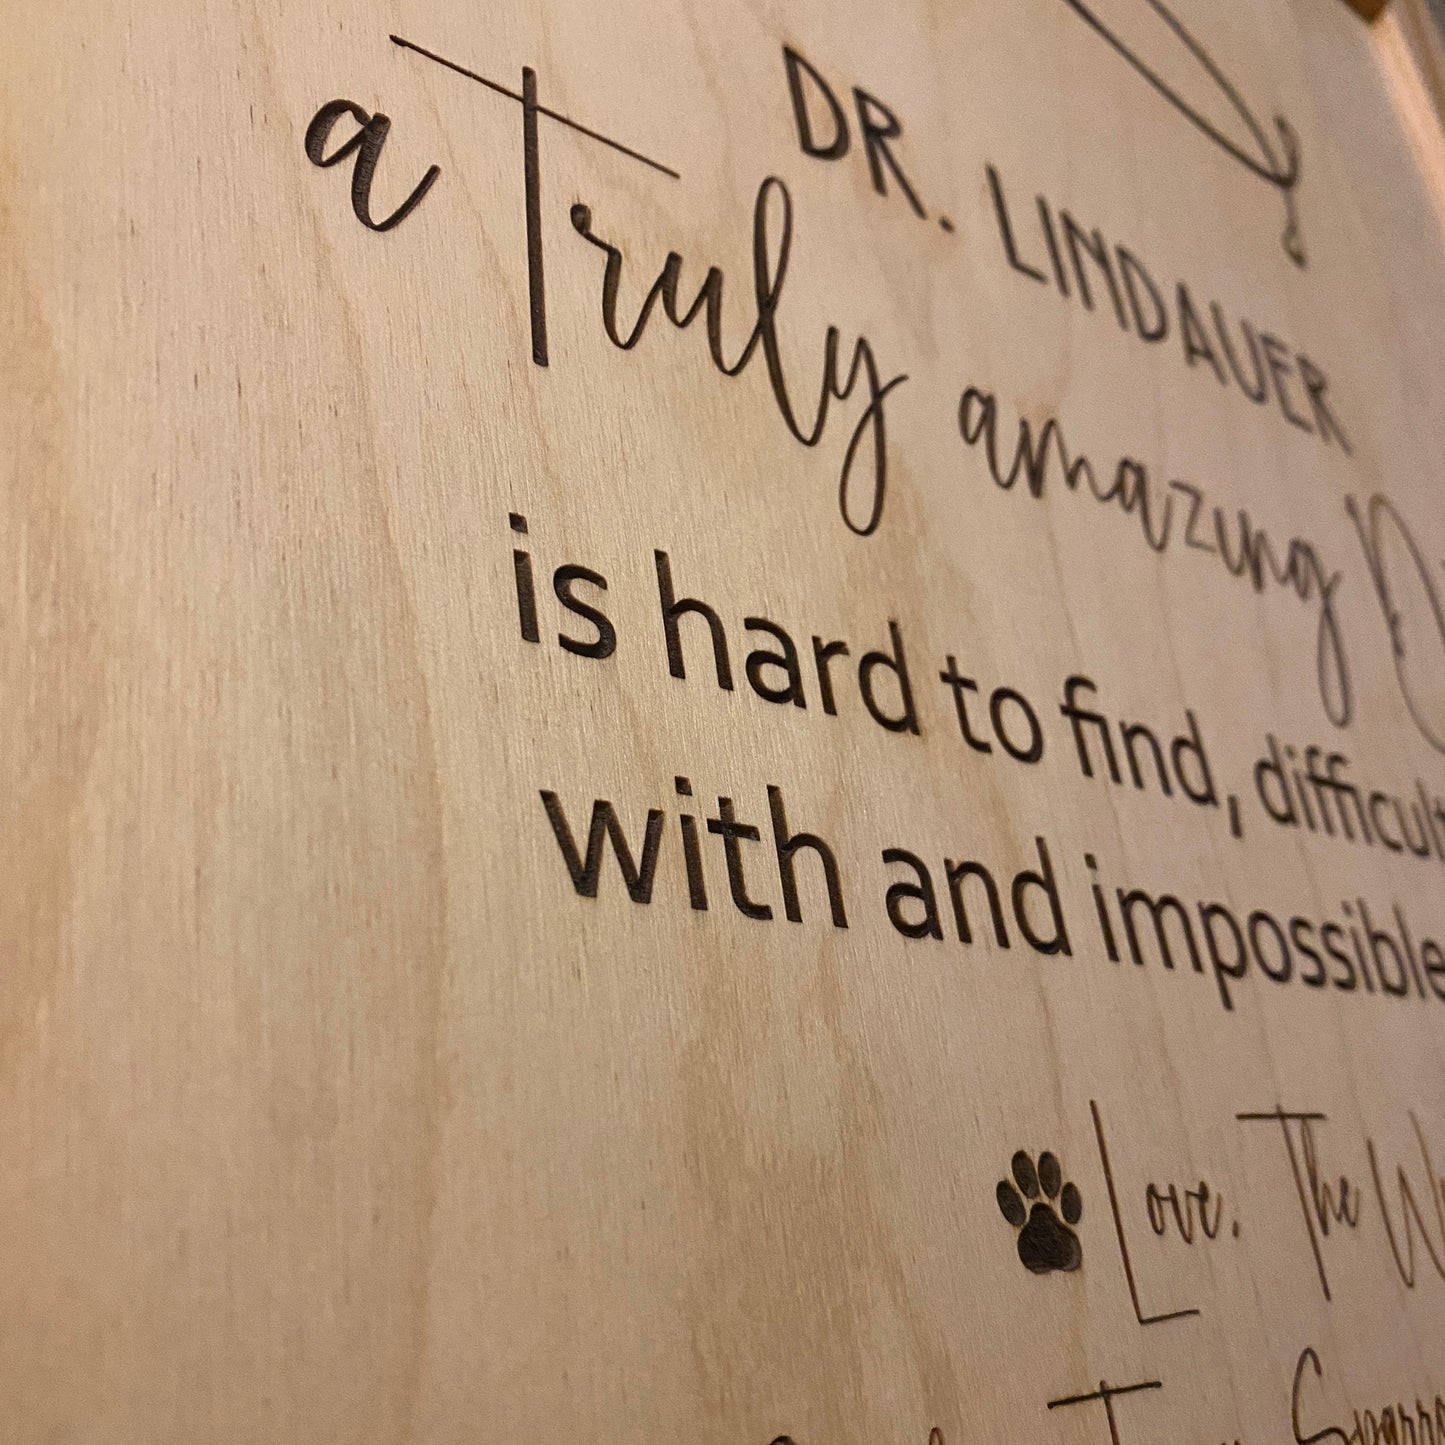 DR. LINDAUER
a Truly amazing
is hard to find, difficult
with and impossible
Love, The